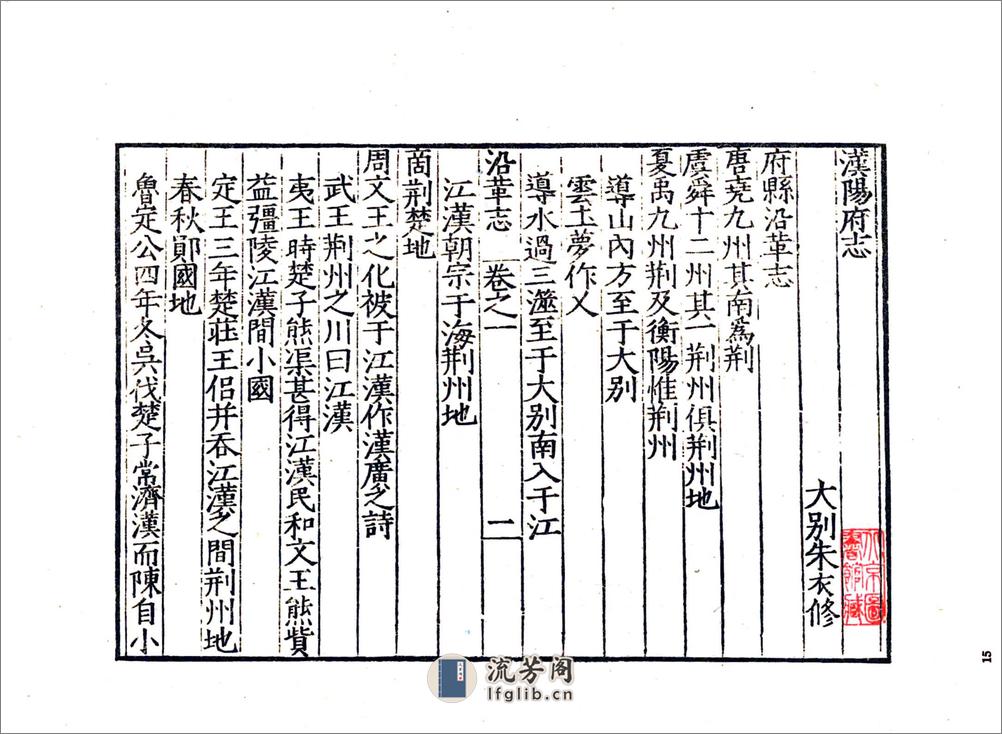 漢陽府志
大别朱衣修
府縣沿革志
唐堯九州其南爲荆
虞舜十二州其一荆州俱荆州地
夏禹九州荆及衡陽惟荆州
導山内方至于大别
雲土夢作乂
導水過三澨至于大别南入于江
沿革志 卷之一 二
江漢朝宗于海荆州地
商荆楚地
周文王之化被于江漢作漢廣之詩
武王荆州之川曰江漢
夷王時楚子熊渠甚得江漢民和文王熊貲
益彊陵江漢間小國
定王三年楚莊王侣并吞江漢之間荆州地
春秋鄖國地
魯定公四年冬吳伐楚子常濟漢而陳自小
北京圖
書館藏
15
流芳阁
lfglib.cn